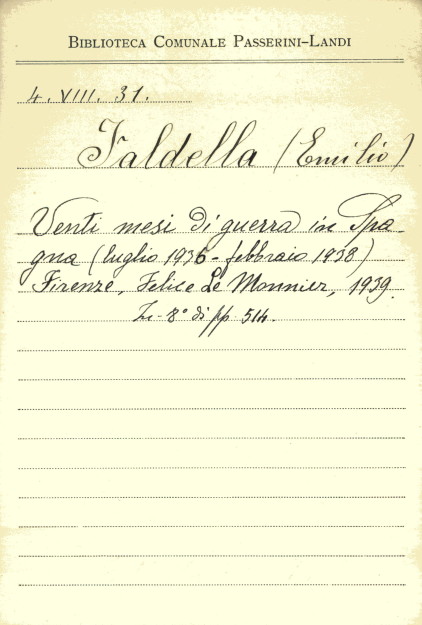 BIBLIOTECA COMUNALE PASSERINI-LANDI
4. VIII. 31.
Faldella (Emilio)
Venti mesi di guerra in Spa-
gna (luglio 1936 - febbraio 1938)
Firenze, Felice Le Monnier, 1939.
8° di pp 514.